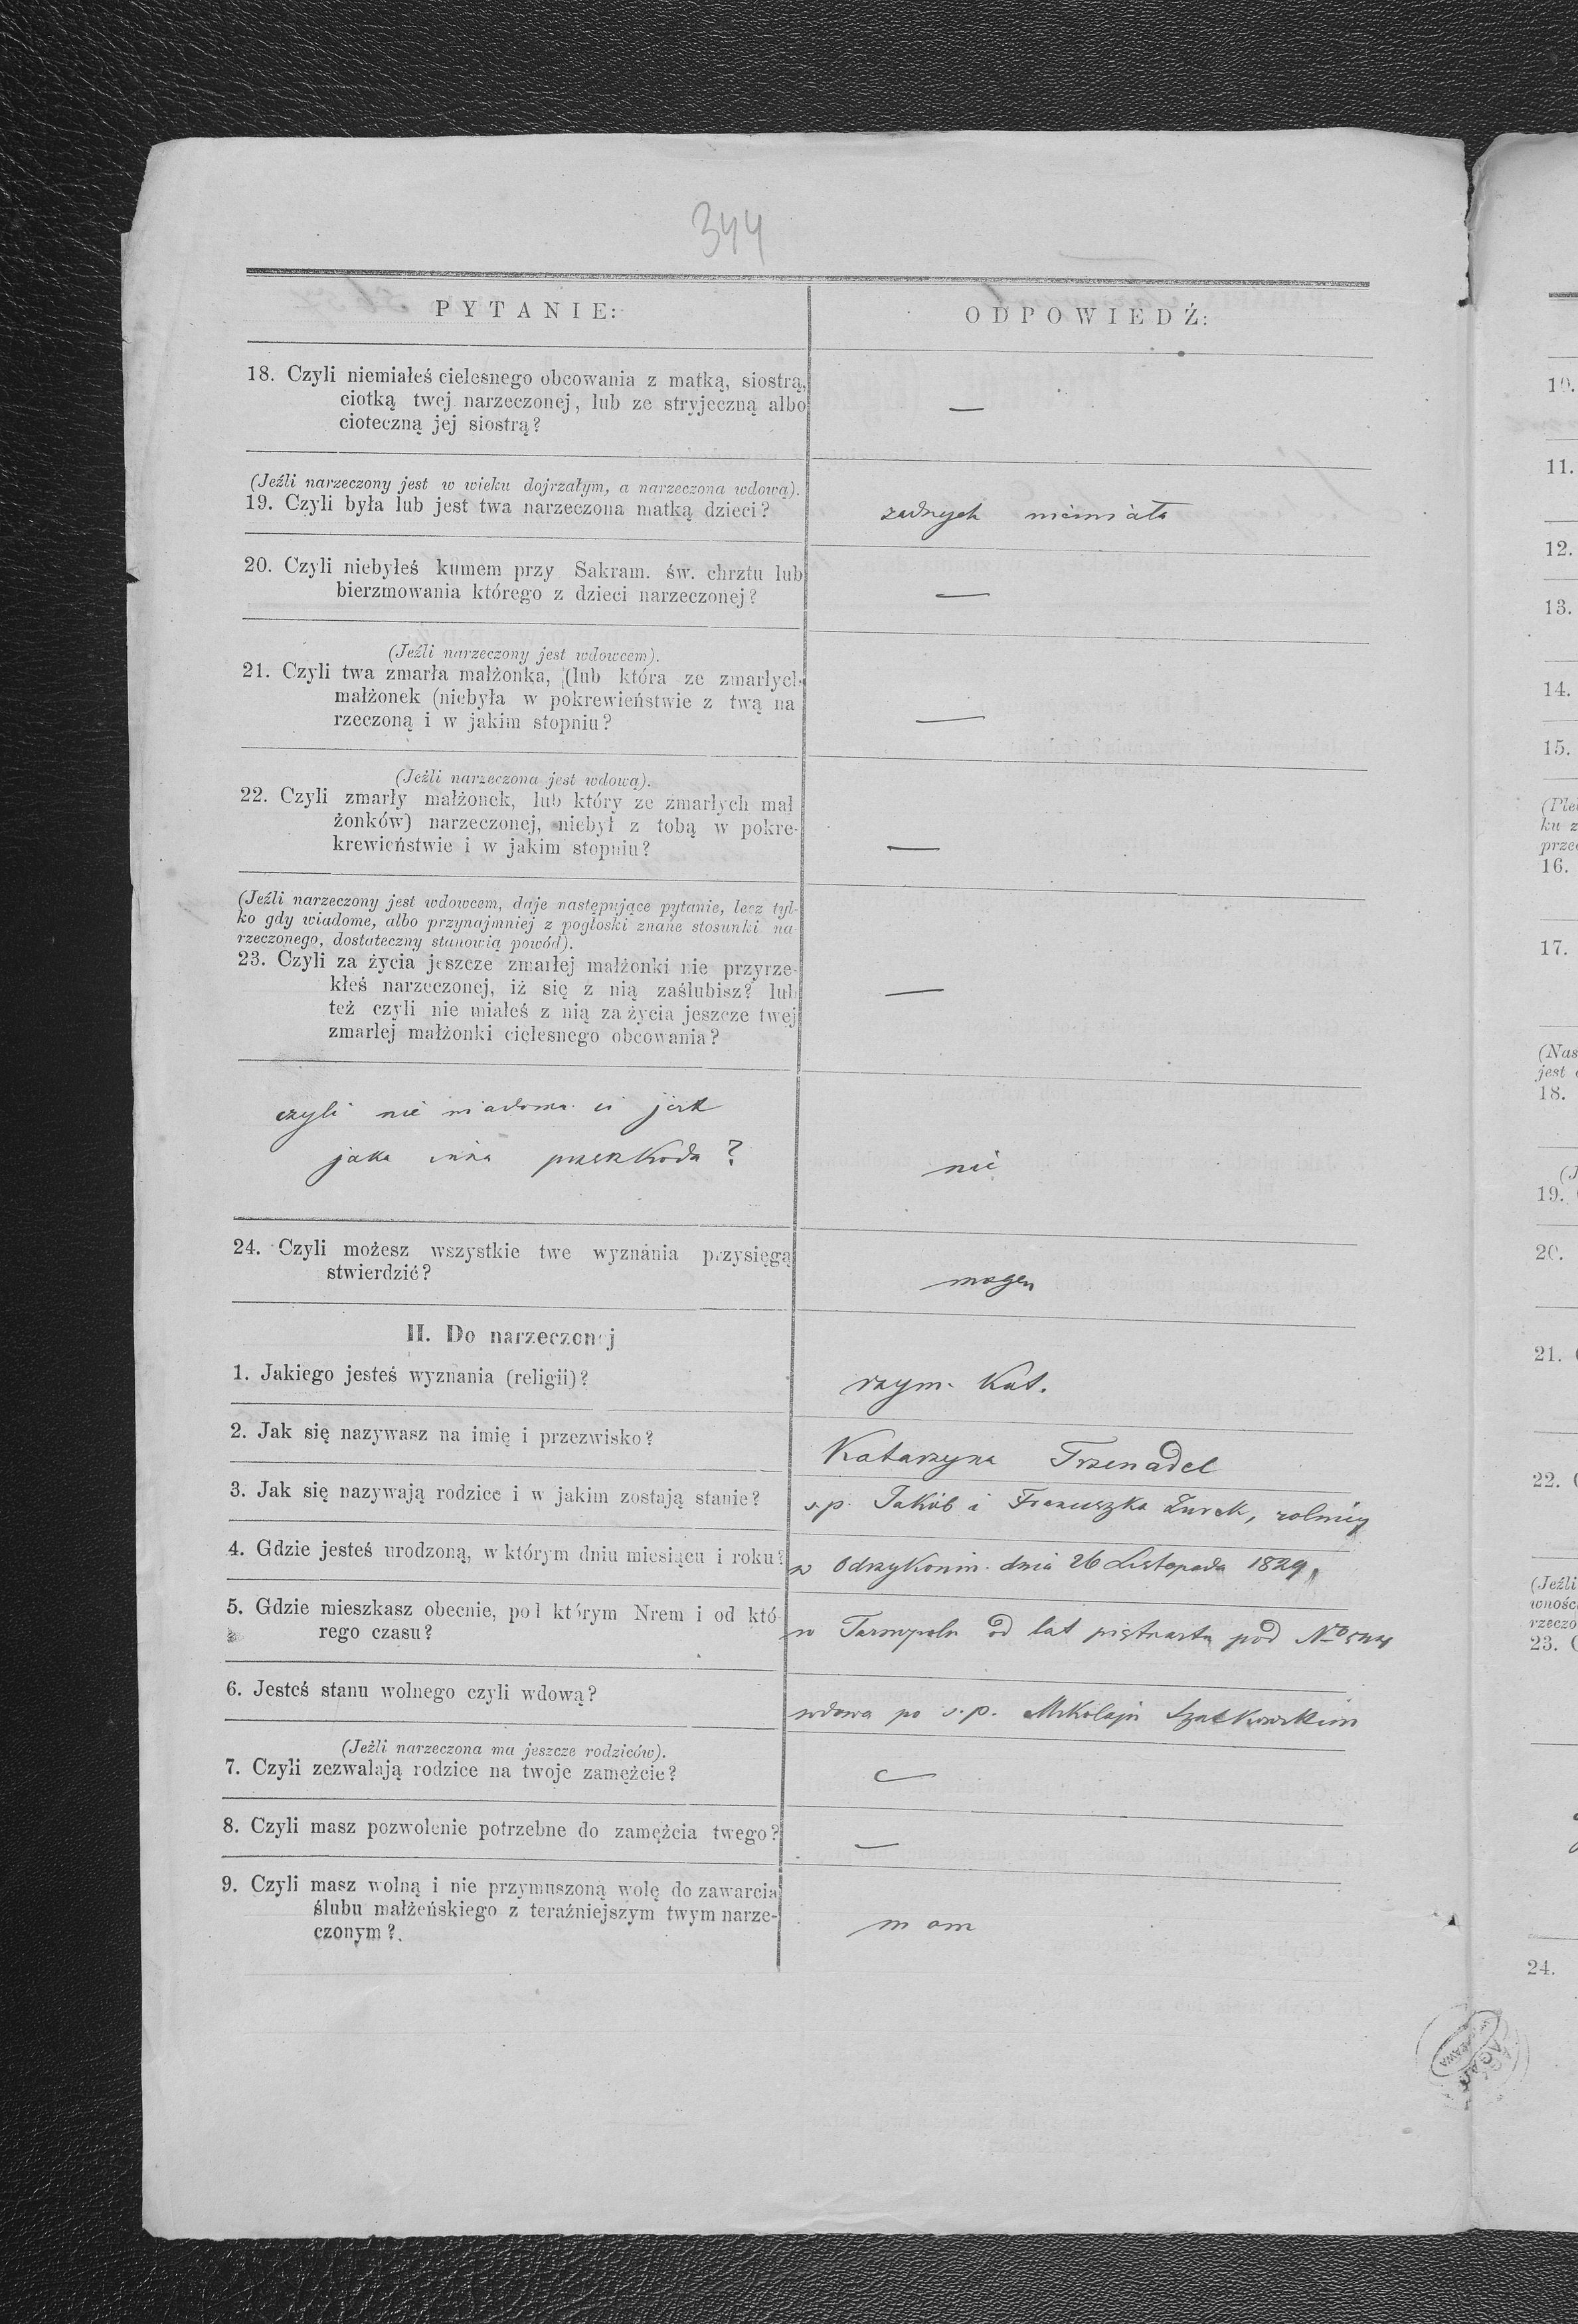 344
PYTANIE:
ODPOWIEDŹ:
18. Czyli niemiałeś cielesnego obcowania z matką, siostrą,
ciotką twej narzeczonej, lub ze stryjeczną albo
cioteczną jej siostrą?
—
(Jeźli narzeczony jest w wieku dojrzałym, a narzeczona wdową).
19. Czyli była lub jest twa narzeczona matką dzieci?
żadnych niemiała
20. Czyli niebyłeś kumem przy Sakram. św. chrztu lub
bierzmowania którego z dzieci narzeczonej?
—
(Jeźli narzeczony jest wdowcem).
21. Czyli twa zmarła małżonka, (lub która ze zmarłych
małżonek (niebyła w pokrewieństwie z twą na
rzeczoną i w jakim stopniu?
—
(Jeźli narzeczona jest wdową).
22. Czyli zmarły małżonek, lub który ze zmarłych mał
żonków) narzeczonej, niebył z tobą w pokre-
krewieństwie i w jakim stopniu?
—
(Jeźli narzeczony jest wdowcem, daje następujące pytanie, lecz tyl-
ko gdy wiadome, albo przynajmniej z pogłoski znane stosunki na-
rzeczonego, dostateczny stanowią powód).
23. Czyli za życia jeszcze zmarłej małżonki nie przyrze-
kłeś narzeczonej, iż się z nią zaślubisz? lub
też czyli nie miałeś z nią za życia jeszcze twej
zmarlej małżonki cielesnego obcowania?
—
czyli nie wiadoma ci jest
jaka inna przeszkoda?
nie
24. Czyli możesz wszystkie twe wyznania przysięgą
stwierdzić?
mogę
II. Do narzeczonej
1. Jakiego jesteś wyznania (religii)?
rzym. Kat.
2. Jak się nazywasz na imię i przezwisko?
Katarzyna Trzenadel
3. Jak się nazywają rodzice i w jakim zostają stanie?
s.p. Jakób i Franciszka Żurek, rolnicy
4. Gdzie jesteś urodzoną, w którym dniu miesiącu i roku?
w Odrzykoniu. dnia 26 Listopada 1829.
5. Gdzie mieszkasz obecnie, pod którym Nrem i od któ-
rego czasu?
w Tarnopolu od lat piętnastu pod No
6. Jesteś stanu wolnego czyli wdową?
wdowa po s.p. Mikołaju
(Jeźli narzeczona ma jeszcze rodziców).
7. Czyli zezwalają rodzice na twoje zamęźcie?
—
8. Czyli masz pozwolenie potrzebne do zamężcia twego?
—
9. Czyli masz wolną i nie przymuszoną wolę do zawarcia
ślubu małżeńskiego z teraźniejszym twym narze-
czonym?
mam
10.
11.
12.
13.
14.
15.
16.
17.
18.
19.
20.
21.
22.
23.
24.
AGAD